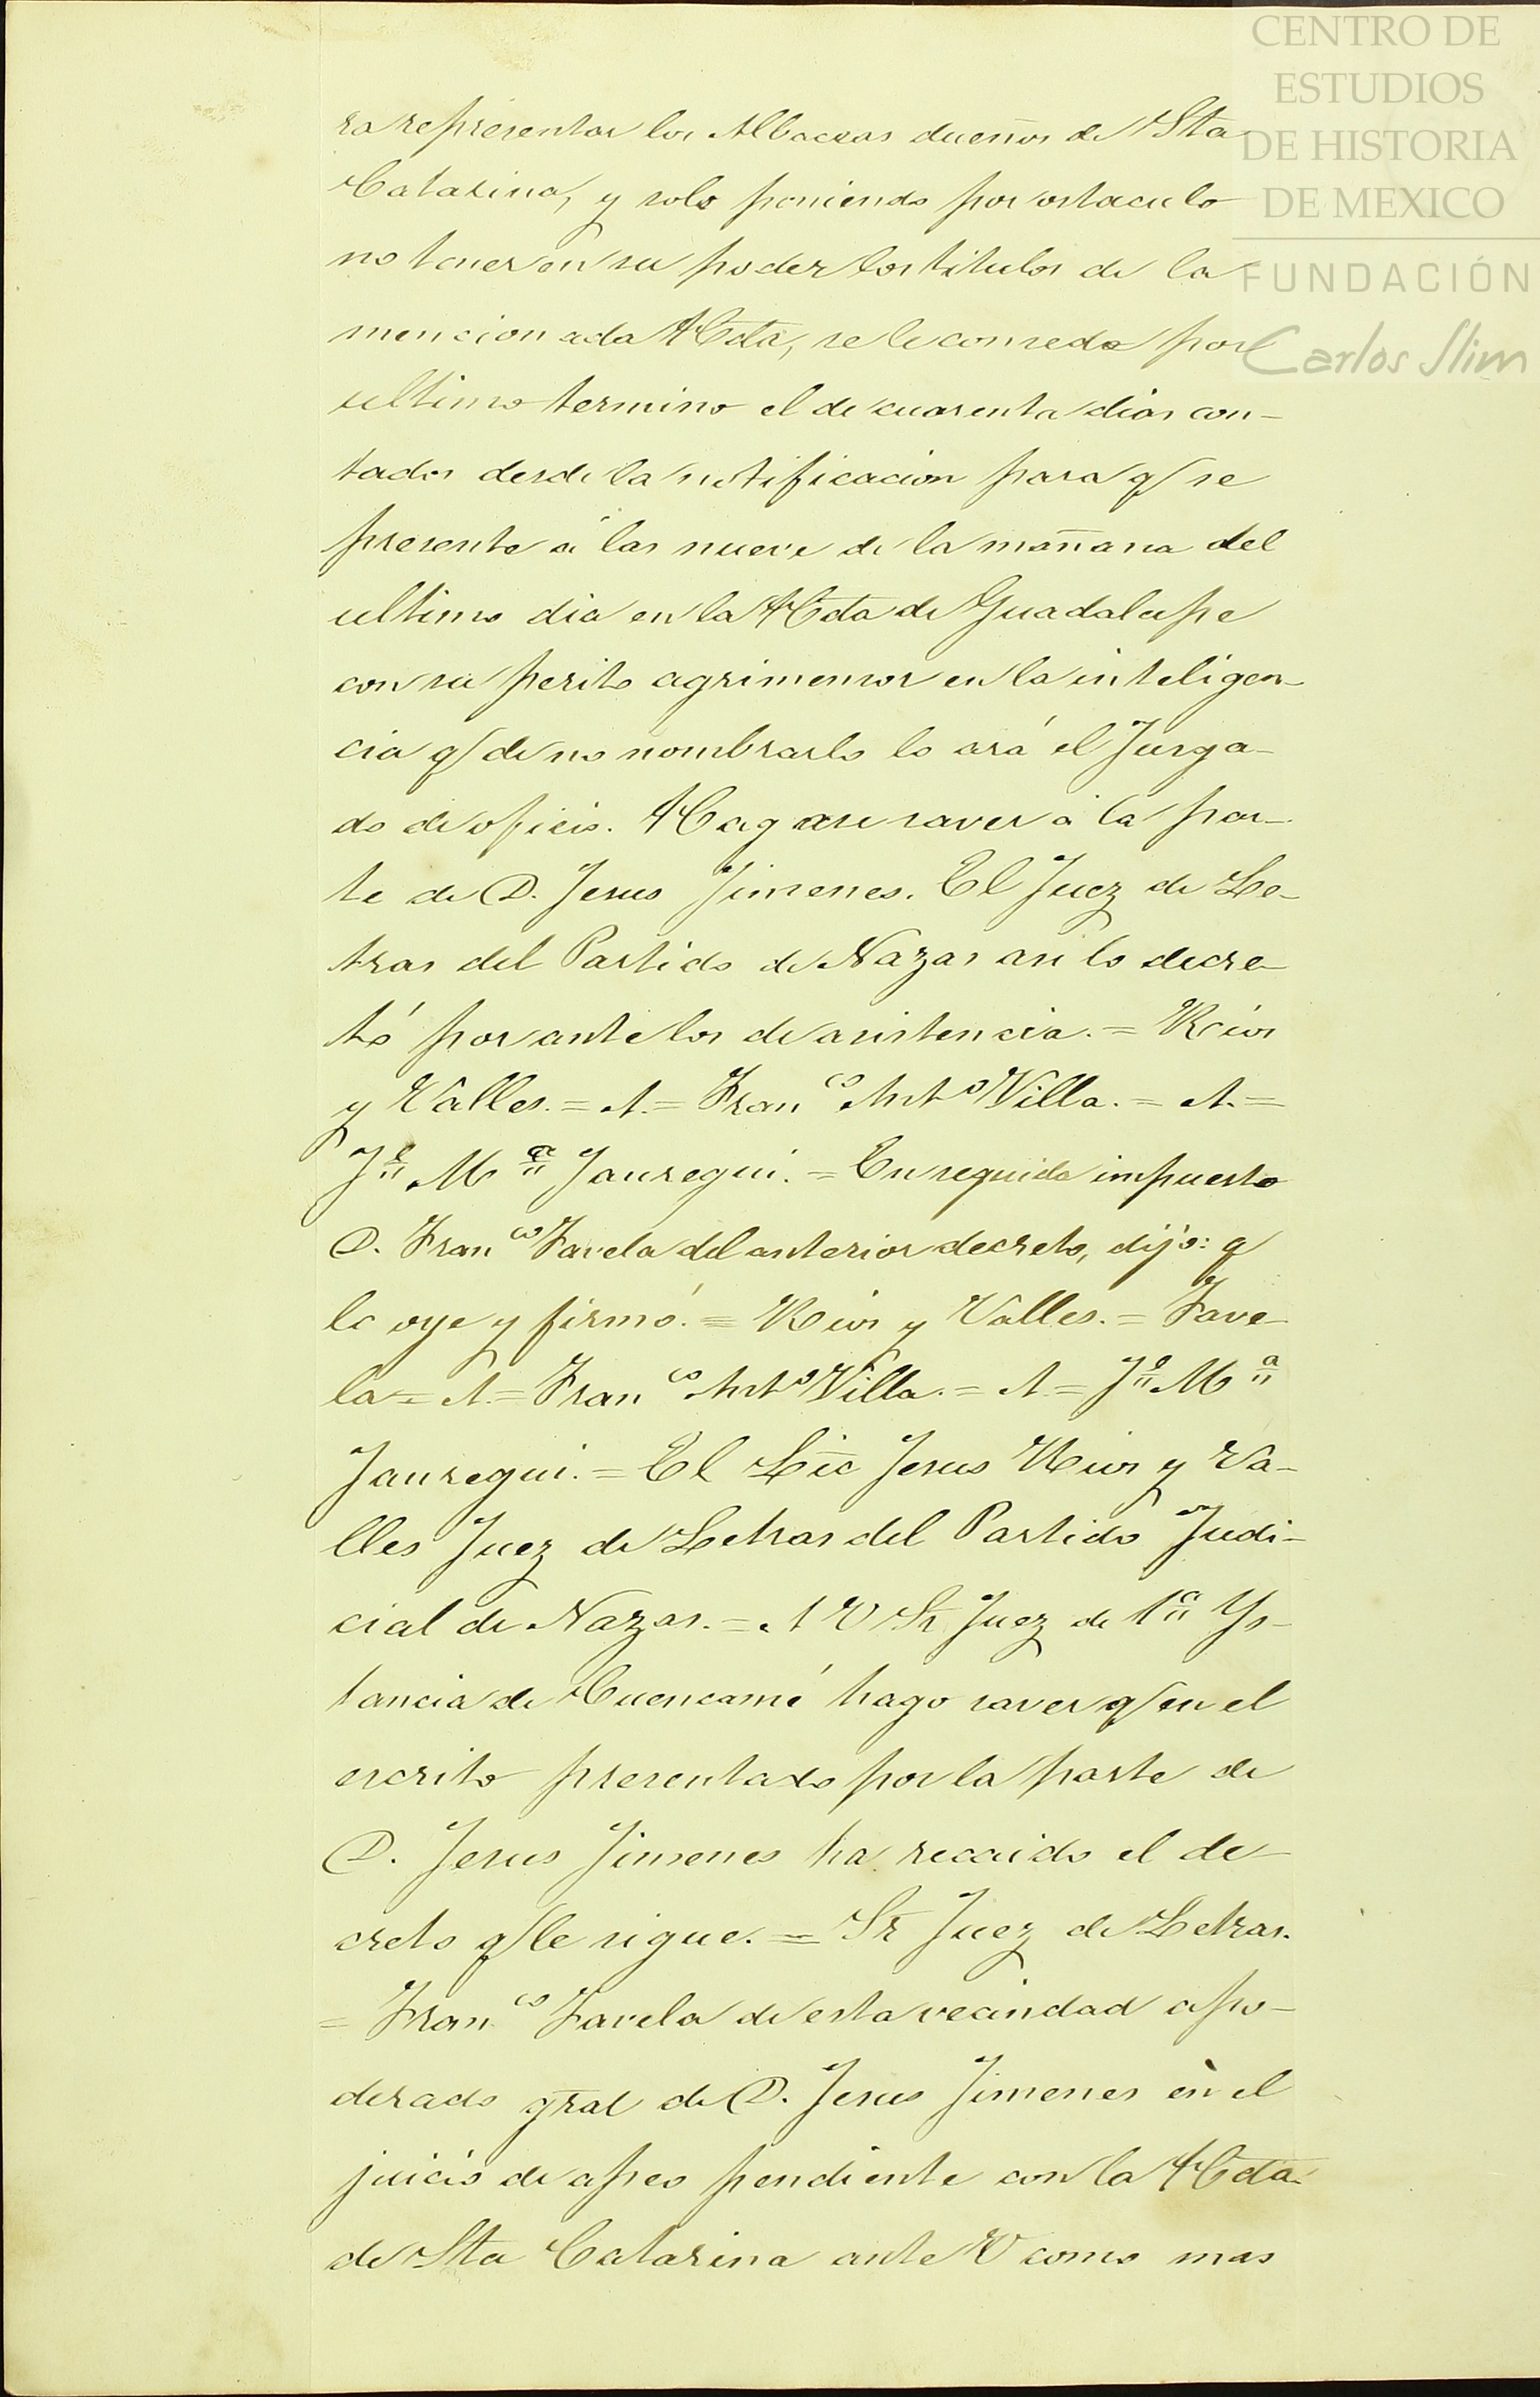 CENTRO DE
ESTUDIOS
DE HISTORIA
DE MEXICO
FUNDACIÓN
Carlos Slim
ra representar los Albaceas dueños de Sta
Catarina, y solo poniendo por ostaculo
no tener en su poder los titulos de la
mencionada Hda, se le consede por
ultimo termino el de cuarenta dias con-
tados desde la notificacion para q/ se
presente á las nueve de la mañana del
ultimo dia en la Hda de Guadalupe
con su perito agrimensor en la inteligen-
cia q/ de no nombrarlo lo ará el Jusga-
do de oficio. Hagase saver á la par-
te de D. Jesus Jimenes. El Juez de Le-
tras del Partido de Nazas asi lo decre-
tó por ante los de asistencia. = Rios
y Valles. = A. = Franco Anto Villa. = A. =
Je Ma Jauregui. = En seguida impuesto
D. Franco Favela del anterior decreto, dijo: q
lo oye y firmó. = Rios y Valles. = Fave-
la = A. = Franco Anto Villa. = A. = Je Ma
Jauregui. = El Lic Jesus Rios y Va-
lles Juez de Letras del Partido Judi-
cial de Nazas. = A V Sr Juez de 1a Ys-
tancia de Cuencamé hago saver q/ en el
escrito presentado por la parte de
D. Jesus Jimenes ha recaido el de-
creto q/ le sigue. = Sr Juez de Letras.
= Franco Favela de esta vecindad apo-
derado gral de D. Jesus Jimenes en el
juicio de apeo pendiente con la Hda
de Sta Catarina ante V como mas